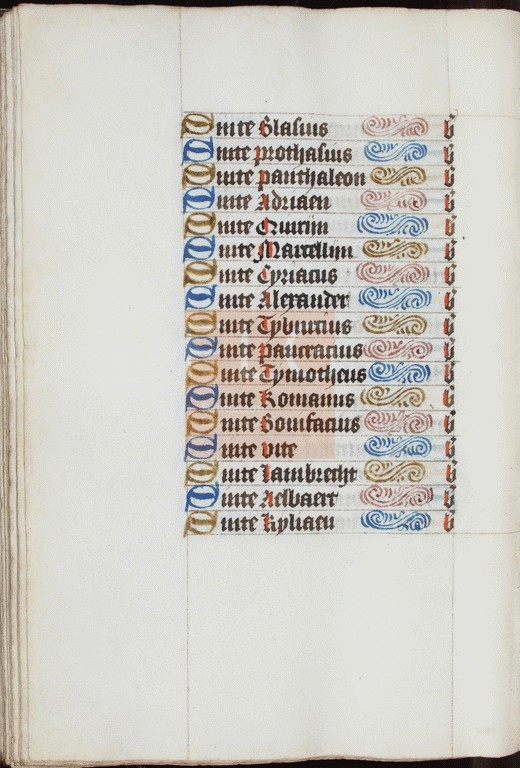 Sinte blasius b
Sinte prothasius b
Sinte panthaleon b
Sinte Adriaen b
Sinte Quirijn b
Sinte Marcellijn b
Sinte Cyriacus b
Sinte Alexander b
Sinte Tyburcius b
Sinte pancracius b
Sinte Tymotheus b
Sinte Romanus b
Sinte bonifacius b
Sinte vite b
Sinte lambrecht b
Sinte Aelbaert b
Sinte kyliaen b